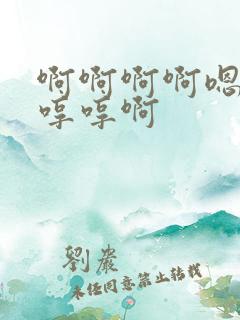 啊啊啊啊嗯
哼哼啊
劉巖
未经同意禁止转载